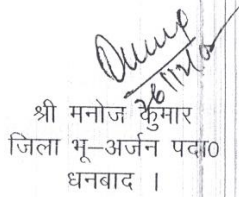 श्री मनोज कुमार
जिला भू–अर्जन पदा0
धनबाद ।